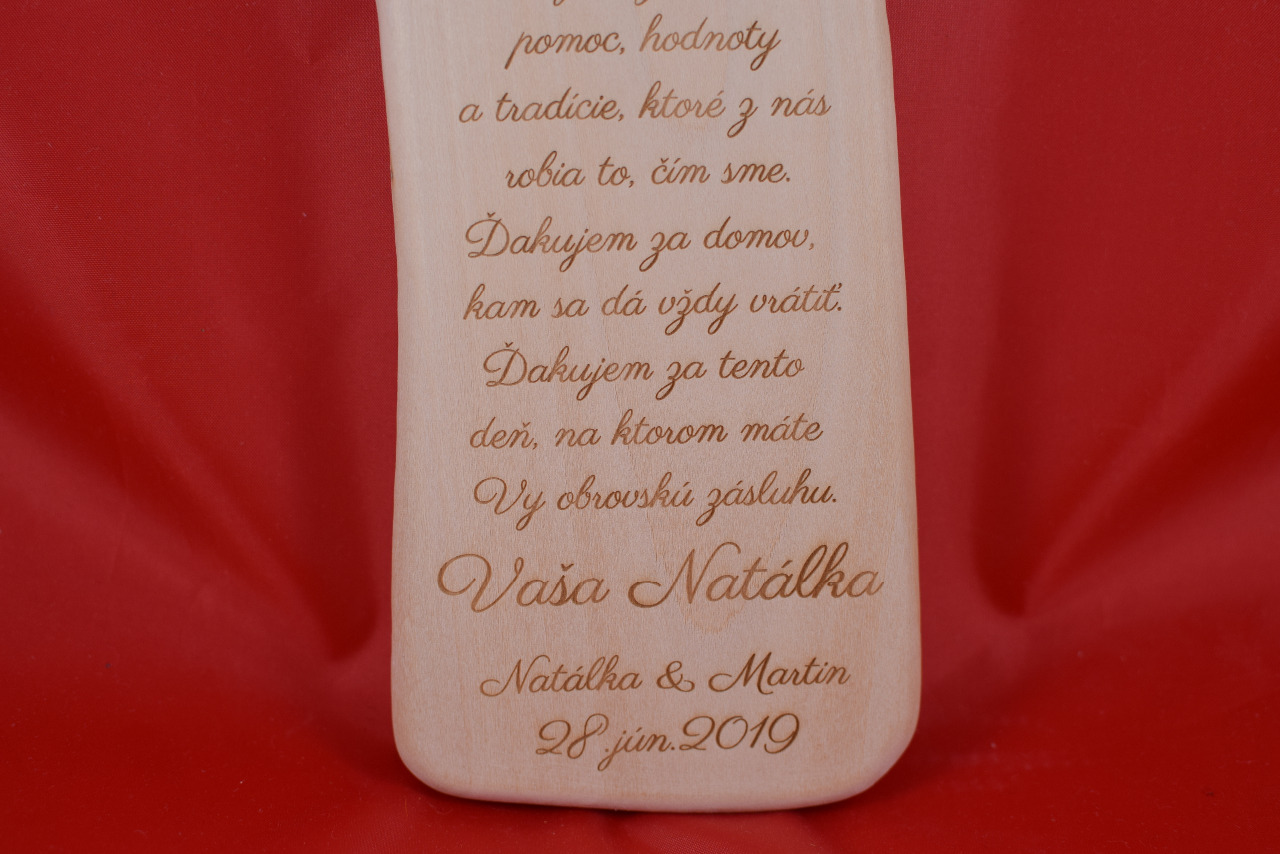 pomoc, hodnoty
a tradície, ktoré z nás
robia to, čím sme.
Ďakujem za domov,
kam sa dá vždy vrátiť.
Ďakujem za tento
deň, na ktorom máte
Vy obrovskú zásluhu.
Vaša Natálka
Natálka & Martin
28.jún.2019